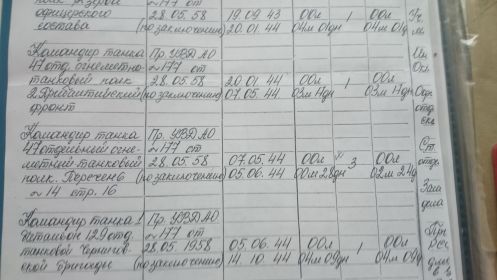 полк резерва ~177 от
офицерского 28.05.58 19.09.43 00л 1 00л
состава (по заключению) 20.01.44 04м 01дн 04м 01д
Командир танка Пр. УВД АО
47 отд. огнеметно- ~177 от
танковый полк 28.05.58 20.01.44 00л 1 00л
2 Прибалтийский (по заключению) 07.05.44 03м 17дн 03м 17дн
фронт
Командир танка Пр. УВД АО
47 отдельный огне- ~177 от
метный танковый 28.05.58 07.05.44 00л 3 00л
полк. Перечень (по заключению) 05.06.44 00м 28дн 02м 24д
~ 14 стр. 16
Командир танка 1 Пр. УВД АО
батальон 129 отд. ~177 от
танковой 28.05.1958 05.06.44 00л 1 00л
ской бригады (по заключению) 14.10.44 04м 09дн 04м 09д